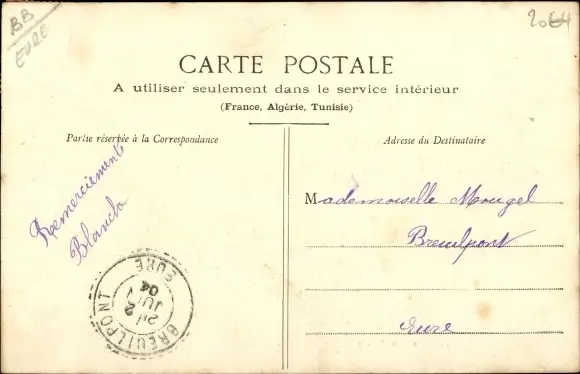 BB
EURE
20€4
CARTE POSTALE
A utiliser seulement dans le service intérieur
(France, Algérie, Tunisie)
Partie réservée à la Correspondance
Adresse du Destinataire
Remerciements
Blanche
Mademoiselle Mougel
Breuilpont
Eure
BREUILPONT
EURE
JUIL
04